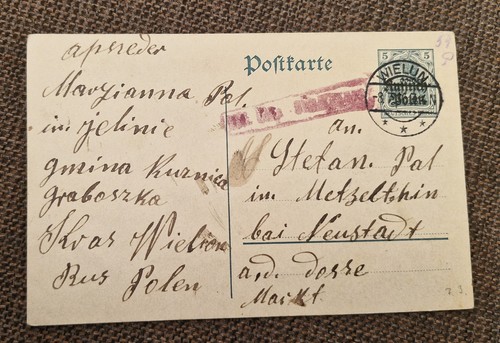 apsreder
Maryianna Pal.
im jelinie
gmina Kuznica
Graboszka
Kras Wielun
Rus Polen
Postkarte
5 5
WIELUN
an.
Stefan. Pal
im Metzelthin
bei Neustadt
a.d. dosse
Markt